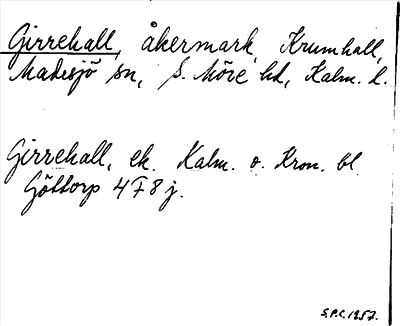 Girrehall, åkermark, Krumhall,
Madesjö sn, S. Möre hd, Kalm. l.
Girrehall, ek. Kalm. o. Kron. bl.
Göttorp 4F8j.
S.P.C. 1957.